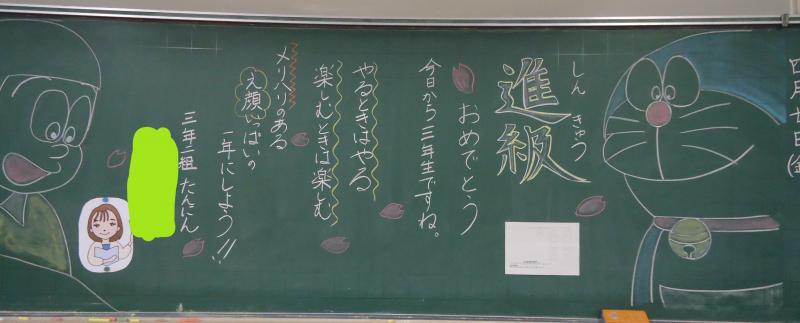 四月七日(金
しんきゅう
進級
おめでとう
今日から三年生ですね。
やるときはやる
楽しむときは楽しむ
メリハリのある
え顔いっぱいの
一年にしよう!!
三年三組 たんにん